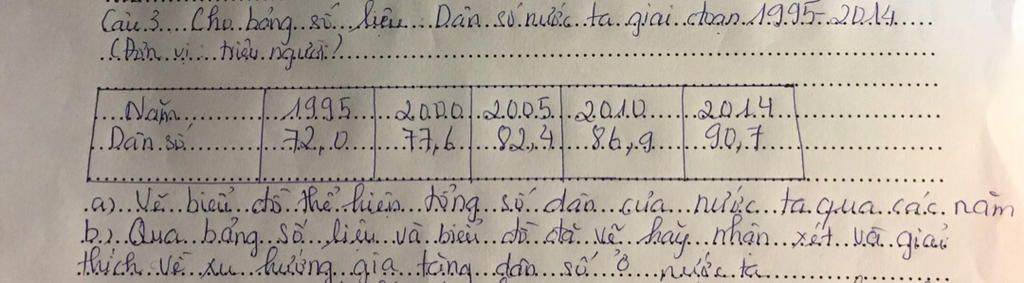 Câu 3... Cho bảng số liệu... Dân số nước ta giai đoạn 1995-2014
(Đơn vị: triệu người)
Năm 1995 2000 2005 2010 2014
Dân số 72,0 77,6 82,4 86,9 90,7
a) Vẽ biểu đồ thể hiện tổng số dân của nước ta qua các năm
b) Qua bảng số liệu và biểu đồ đã vẽ hãy nhận xét và giải
thích về xu hướng gia tăng dân số ở nước ta